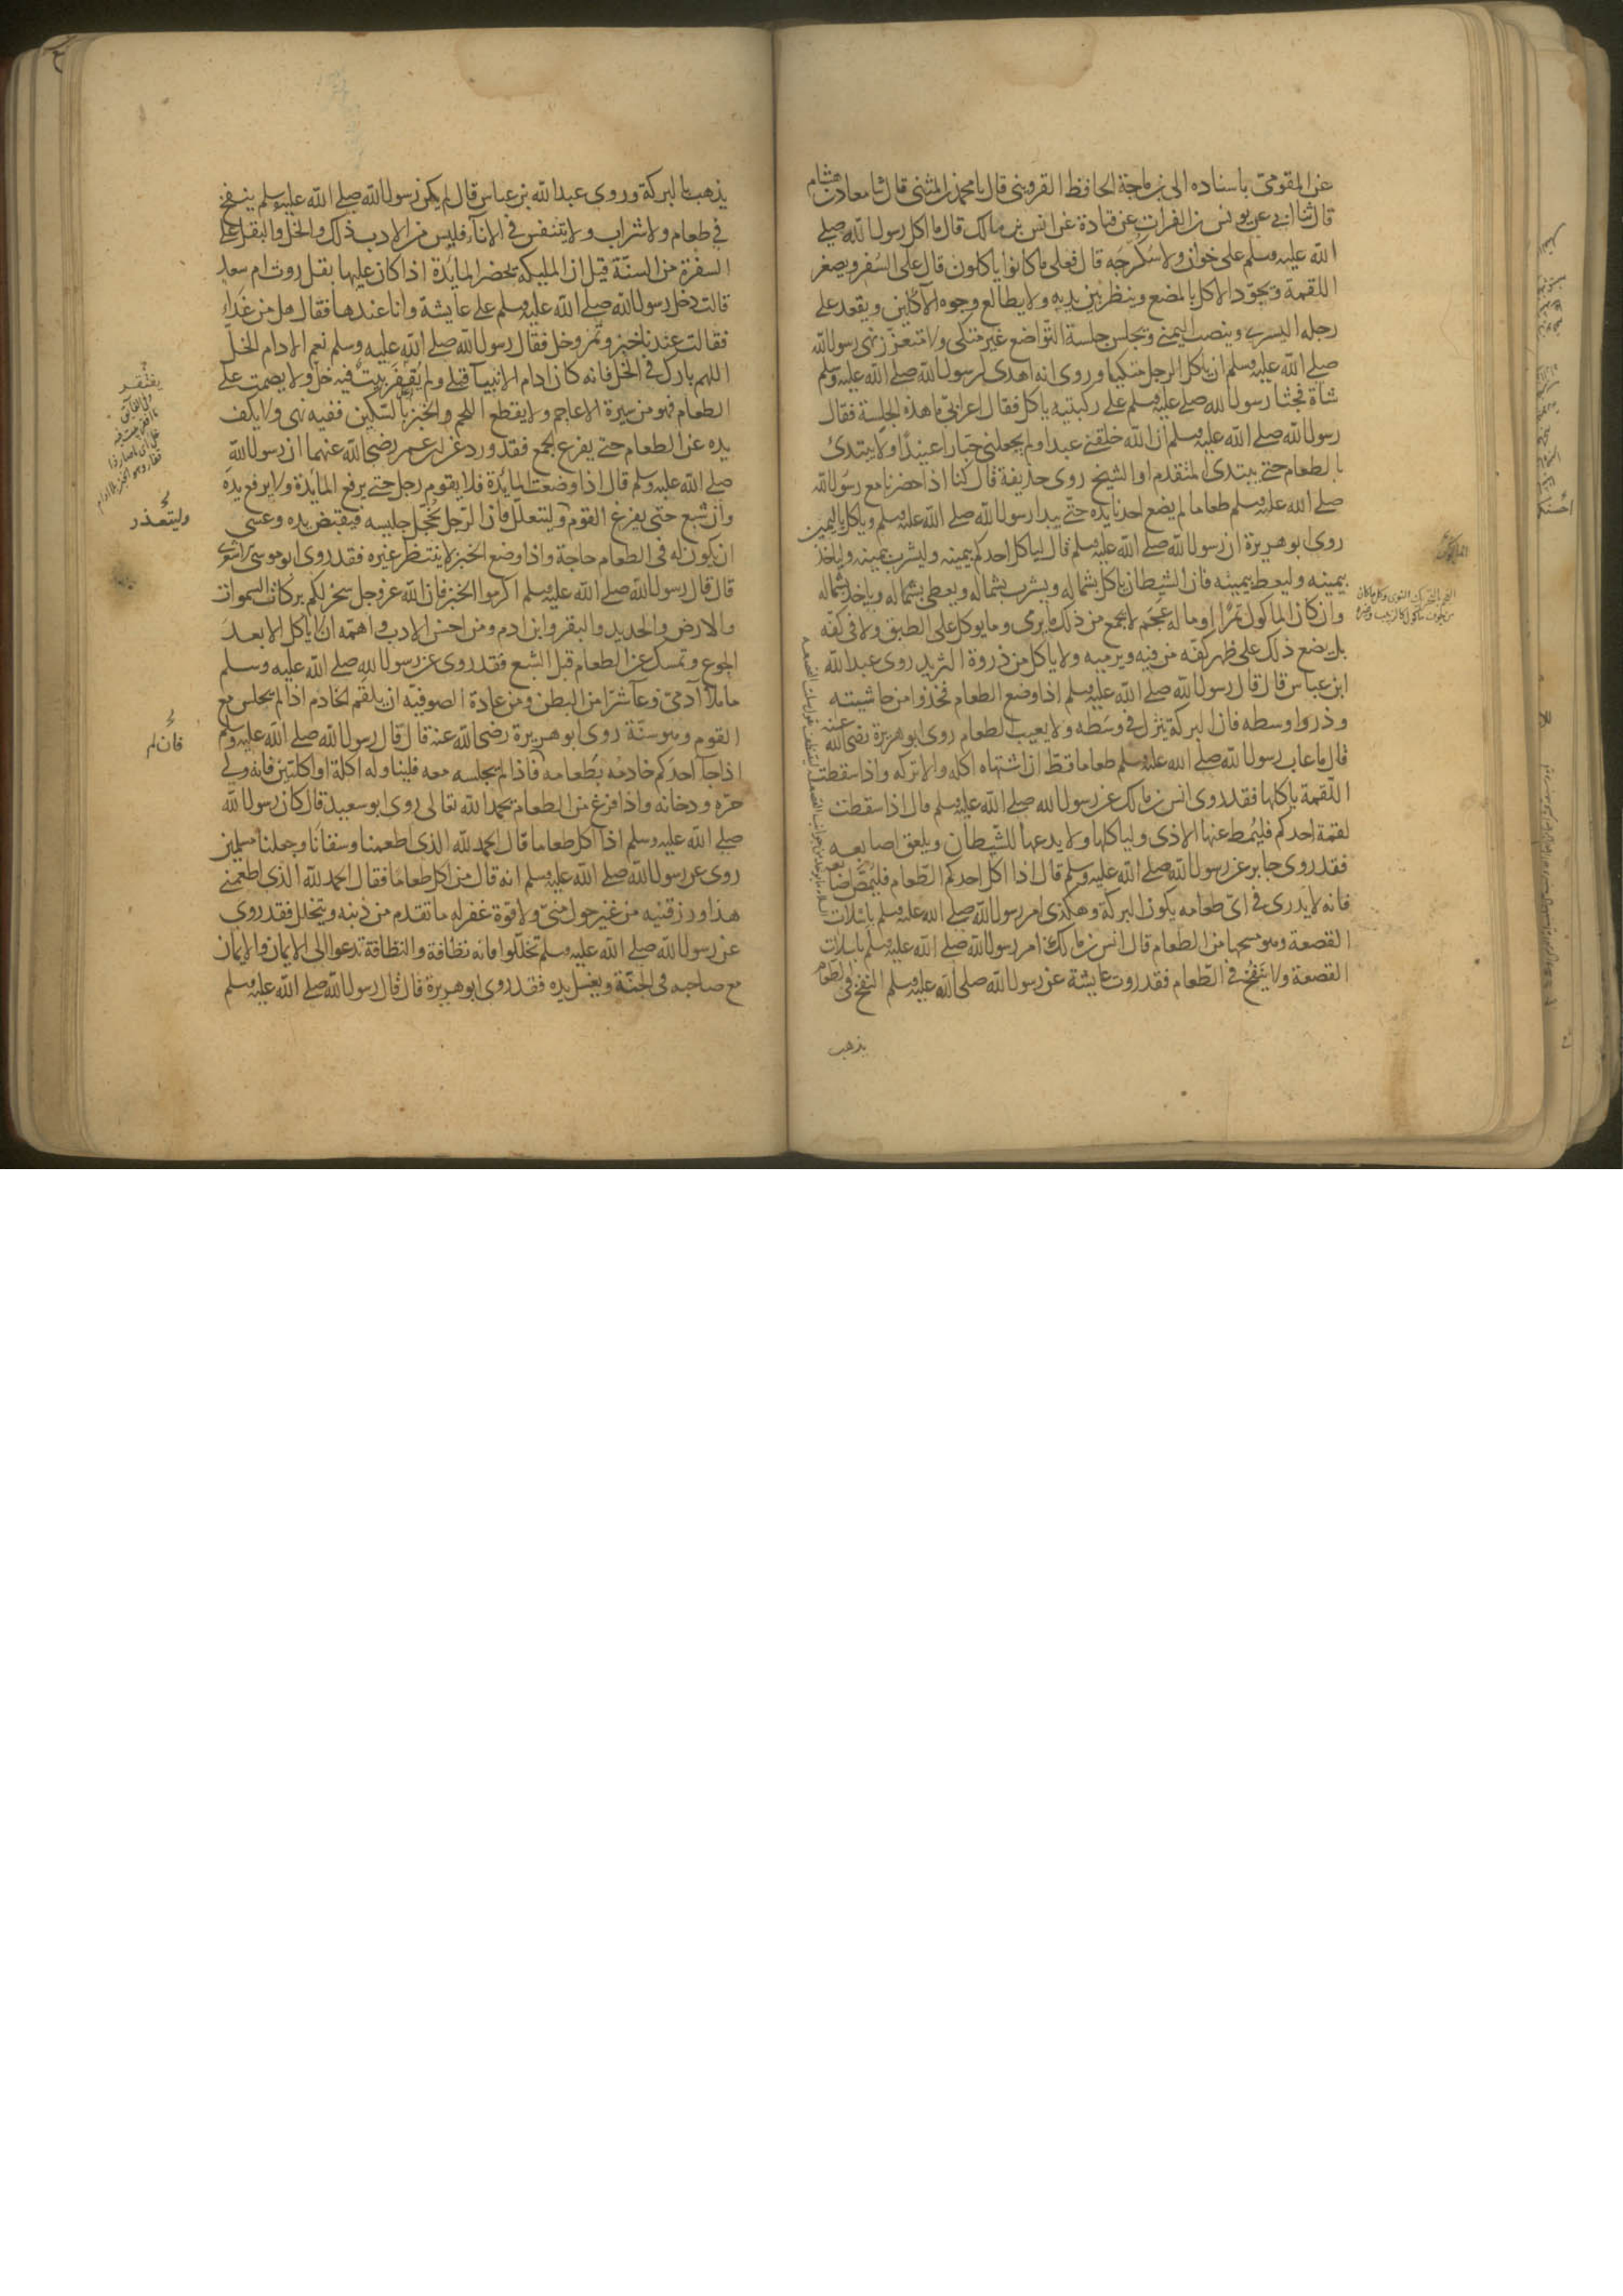 عن المقومى باسناده الى بن ماجة الحافظ القزوينى قال نا محمد بن المثنى قال ثنا معاذ بن هشام
قال ثنا ابى عن يونس بن الفرات عن قتادة عن انس بن مالك قال ما اكل رسول الله صلى
الله عليه وسلم على خوان ولا سكرجه قال فعلى ما كانوا ياكلون قال على السفر ويصغر
اللقمة ويجود الاكل بالمضغ وينظر بين يديه ولا يطالع وجوه الآكلين ويقعد على
رجله اليسرى وينصب اليمنى ويجلس جلسة التواضع غير متكى ولا متعزز نهى رسول الله
صلى الله عليه وسلم ان ياكل الرجل متكيا وروى انه اهدى لرسول الله صلى الله عليه وسلم
شاة فجثا رسول الله صلى عليه وسلم على ركبتيه ياكل فقال اعرابى ما هذه الجلسة فقال
رسول الله صلى الله عليه وسلم ان الله خلقنى عبدا ولم يجعلنى جبارا عنيدا ولا يبتدى
بالطعام حتى يبتدى المتقدم او الشيخ روى حذيفة قال كنا اذا حضرنا مع رسول الله
صلى الله عليه وسلم طعاما لم يضع احدنا يده حتى يبدا رسول الله صلى الله عليه وسلم وياكل باليمين
روى ابو هريرة ان رسول الله صلى الله عليه وسلم قال لياكل احدكم بيمينه وليشرب بيمينه ولياخذ
بيمينه وليعط بيمينه فان الشيطان ياكل بشماله ويشرب بشماله ويعطى بشماله وياخذ بشماله
وان كان الماكول تمرا او ما له عجم لا يجمع من ذلك ما يرمى وما يوكل على الطبق ولا فى كفه
بل يضع ذلك على ظهر كفه من فيه ويرميه ولا ياكل من ذروة الثريد روى عبد الله
ابن عباس قال قال رسول الله صلى الله عليه وسلم اذا وضع الطعام فخذوا من حاشيته
وذروا وسطه فان البركة ينزل فى وسطه ولا يعيب الطعام روى ابو هريرة رضى الله عنه
قال ما عاب رسول الله صلى الله عليه وسلم طعاما قط ان اشتهاه اكله والا تركه واذا سقطت
اللقمة ياكلها فقد روى انس بن مالك عن رسول الله صلى الله عليه وسلم قال اذا سقطت
لقمة احدكم فليمط عنها الاذى ولياكلها ولا يدعها للشيطان ويلعق اصابعه
فقد روى جابر عن رسول الله صلى الله عليه وسلم قال اذا اكل احدكم الطعام فليمص اصابعه
فانه لا يدرى فى اى طعامه يكون البركة وهكذى امر رسول الله صلى الله عليه وسلم باسلات
القصعة وهو مسحها من الطعام قال انس بن مالك امر رسول الله صلى الله عليه وسلم باسلات
القصعة ولا ينفخ فى الطعام فقد روت عايشة عن رسول الله صلى الله عليه وسلم النفخ فى الطعام
يذهب
يذهب بالبركة وروى عبد الله بن عباس قال لم يكن رسول الله صلى الله عليه وسلم ينفخ
فى طعام ولا شراب ولا يتنفس فى الاناء فليس من الادب ذلك والخل والبقل على
السفرة من السنة قيل ان المليكه تحضر المايدة اذا كان عليها بقل روت ام سعد
قالت دخل رسول الله صلى الله عليه وسلم على عايشة وانا عندها فقال هل من غداء
فقالت عندنا خبز وتمر وخل فقال رسول الله صلى الله عليه وسلم نعم الادام الخل
اللهم بارك فى الخل فانه كان ادام الانبيا قبلى ولم يقفر بيت فيه خل ولا يصمت على
الطعام فهو من سيرة الاعاجم ولا يقطع اللحم والخبز بالسكين ففيه نهى ولا يكف
يده عن الطعام حتى يفرغ الجمع فقد ورد عن ابن عمر رضى الله عنهما ان رسول الله
صلى الله عليه وسلم قال اذا وضعت المايدة فلا يقوم رجل حتى يرفع المايدة ولا يرفع يده
وان شبع حتى يفرغ القوم وليتعلل فان الرجل يخجل جليسه فيقبض يده وعسى
ان يكون له فى الطعام حاجة واذا وضع الخبز لا ينتظر غيره فقد روى ابو موسى الاشعرى
قال قال رسول الله صلى الله عليه وسلم اكرموا الخبز فان الله عز وجل سخر لكم بركات السموات
والارض والحديد والبقر وابن ادم ومن احسن الادب واهمه ان لا ياكل الا بعد
الجوع وتمسك عن الطعام قبل الشبع فقد روى عن رسول الله صلى الله عليه وسلم
ما ملأ آدمى وعآ شرا من البطن ومن عادة الصوفيه ان يلقم الخادم اذا لم يجلس مع
القوم وهو سنة روى ابو هريرة رضى الله عنه قال قال رسول الله صلى الله عليه وسلم
اذا جآ احدكم خادمه بطعامه فاذا لم يجلسه معه فليناوله اكلة او اكلتين فانه ولى
حره ودخانه واذا فرغ من الطعام يحمد الله تعالى روى ابو سعيد قال كان رسول الله
صلى الله عليه وسلم اذا اكل طعاما قال الحمد لله الذى اطعمنا وسقانا وجعلنا مسلمين
روى عن رسول الله صلى الله عليه وسلم انه قال من اكل طعاما فقال الحمد لله الذى اطعمنى
هذا ورزقنيه من غير حول منى ولا قوة غفر له ما تقدم من ذنبه ويتخلل فقد روى
عن رسول الله صلى الله عليه وسلم تخللوا فانه نظافة والنظافة تدعوا الى الايمان والايمان
مع صاحبه فى الجنة ويغسل يده فقد روى ابو هريرة قال قال رسول الله صلى الله عليه وسلم
يفتقر
وليتعذر
فان لم